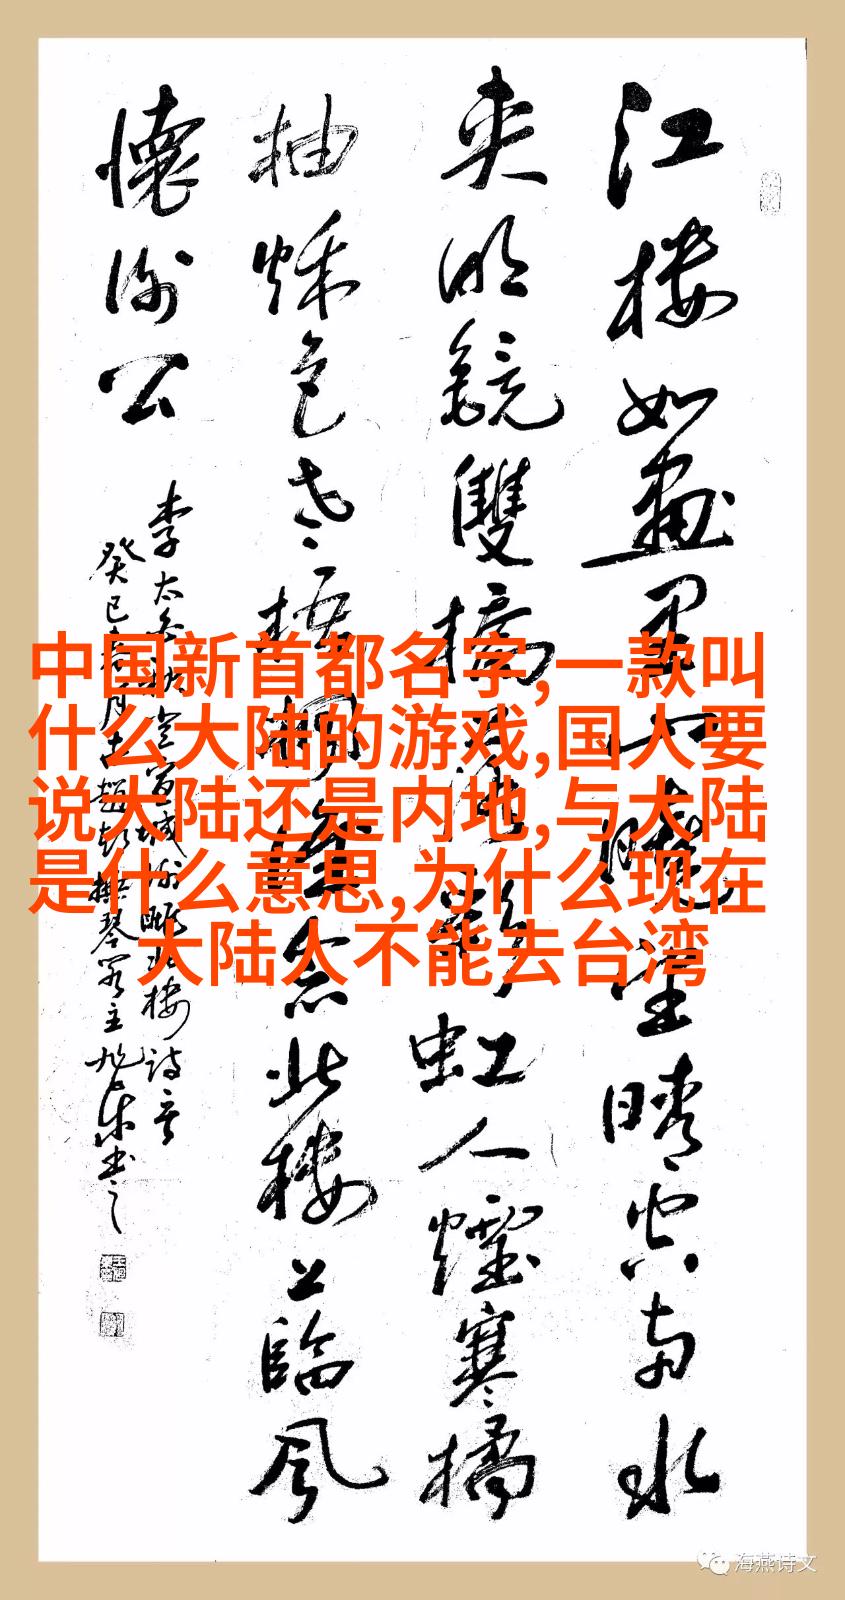 江樓如畫里山曉望晴空兩水
夾明鏡雙橋落彩虹人煙寒橘
柚秋色老梧桐誰念北樓上臨風
懷謝公
李太白秋登宣城謝朓北樓詩一首
癸巳春月古趙
中国新首都名字,一款叫
什么大陆的游戏,国人要
说大陆还是内地,与大陆
是什么意思,为什么现在
大陆人不能去台湾
海燕诗文